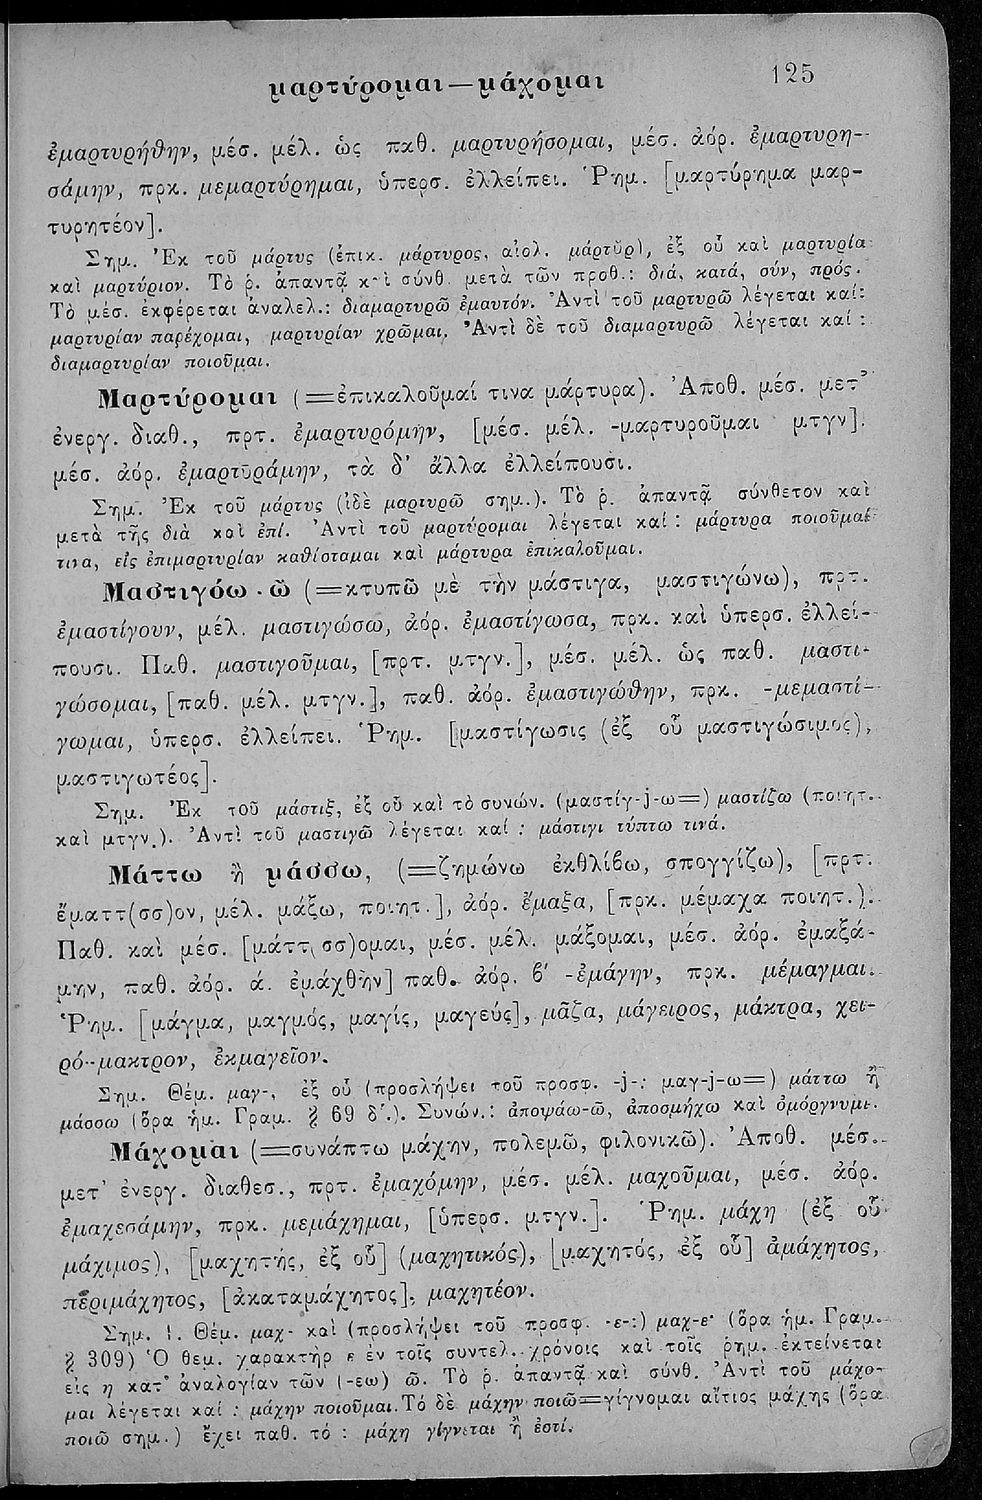 μαρτύρομαι — μάχομαι 125
ἐμαρτυρήθην, μέσ. μέλ. ὡς παθ. μαρτυρήσομαι, μέσ. ἀόρ. ἐμαρτυρη-
σάμην, πρκ. μεμαρτύρημαι, ὑπερσ. ἐλλείπει. Ῥημ. [μαρτύρημα μαρ-
τυρητέον].
Σημ. Ἐκ τοῦ μάρτυς (ἐπικ. μάρτυρος, αἰολ. μάρτῠρ), ἐξ οὗ καὶ μαρτυρία
καὶ μαρτύριον. Τὸ ῥ. ἁπαντᾷ καὶ σύνθ. μετὰ τῶν προθ.: διά, κατά, σύν, πρός.
Τὸ μέσ. ἐκφέρεται ἀναλελ.: διαμαρτυρῶ ἐμαυτόν. Ἀντὶ τοῦ μαρτυρῶ λέγεται καί:
μαρτυρίαν παρέχομαι, μαρτυρίαν χρῶμαι. Ἀντὶ δὲ τοῦ διαμαρτυρῶ λέγεται καί :
διαμαρτυρίαν ποιοῦμαι.
Μαρτύρομαι (=ἐπικαλοῦμαί τινα μάρτυρα). Ἀποθ. μέσ. μετ’
ἐνεργ. διαθ., πρτ. ἐμαρτυρόμην, [μέσ. μέλ. -μαρτυροῦμαι μτγν].
μέσ. ἀόρ. ἐμαρτῡράμην, τὰ δ’ ἄλλα ἐλλείπουσι.
Σημ. Ἐκ τοῦ μάρτυς (ἰδὲ μαρτυρῶ σημ.). Τὸ ῥ. ἁπαντᾷ σύνθετον καὶ
μετὰ τῆς διὰ καὶ ἐπί. Ἀντὶ τοῦ μαρτύρομαι λέγεται καί : μάρτυρα ποιοῦμαί
τινα, εἰς ἐπιμαρτυρίαν καθίσταμαι καὶ μάρτυρα ἐπικαλοῦμαι.
Μαστιγόω - ῶ (=κτυπῶ μὲ τὴν μάστιγα, μαστιγώνω), πρτ.
ἐμαστίγουν, μέλ. μαστιγώσω, ἀόρ. ἐμαστίγωσα, πρκ. καὶ ὑπερσ. ἐλλεί-
πουσι. Παθ. μαστιγοῦμαι, [πρτ. μτγν.], μέσ. μέλ. ὡς παθ. μαστι-
γώσομαι, [παθ. μέλ. μτγν.], παθ. ἀόρ. ἐμαστιγώθην, πρκ. -μεμαστί-
γωμαι, ὑπερσ. ἐλλείπει. Ῥημ. [μαστίγωσις (ἐξ οὗ μαστιγώσιμος),
μαστιγωτέος].
Σημ. Ἐκ τοῦ μάστιξ, ἐξ οὗ καὶ τὸ συνών. (μαστίγ-j-ω=) μαστίζω (ποιητ.
καὶ μτγν.). Ἀντὶ τοῦ μαστιγῶ λέγεται καί : μάστιγι τύπτω τινά.
Μάττω ἢ μάσσω, (=ζημώνω ἐκθλίβω, σπογγίζω), [πρτ.
ἔματτ(σσ)ον, μέλ. μάξω, ποιητ.], ἀόρ. ἔμαξα, [πρκ. μέμαχα ποιητ.).
Παθ. καὶ μέσ. [μάττ(σσ)ομαι, μέσ. μέλ. μάξομαι, μέσ. ἀόρ. ἐμαξά-
μην, παθ. ἀόρ. ά. ἐμάχθην] παθ. ἀόρ. β' -ἐμάγην, πρκ. μέμαγμαι.
Ῥημ. [μάγμα, μαγμός, μαγίς, μαγεύς], μᾶζα, μάγειρος, μάκτρα, χει-
ρό-μακτρον, ἐκμαγεῖον.
Σημ. Θέμ. μαγ-, ἐξ οὗ (προσλήψει τοῦ προσφ. -j-: μαγ-j-ω=) μάττω ἢ
μάσσω (ὅρα ἡμ. Γραμ. § 69 δ΄.). Συνών.: ἀποψάω-ῶ, ἀποσμήχω καὶ ὀμόργνυμι.
Μάχομαι (=συνάπτω μάχην, πολεμῶ, φιλονικῶ). Ἀποθ. μέσ.
μετ’ ἐνεργ. διαθεσ., πρτ. ἐμαχόμην, μέσ. μέλ. μαχοῦμαι, μέσ. ἀόρ.
ἐμαχεσάμην, πρκ. μεμάχημαι, [ὑπερσ. μτγν.]. Ῥημ. μάχη (ἐξ οὗ
μάχιμος), [μαχητής, ἐξ οὗ] (μαχητικός), [μαχητός, ἐξ οὗ] ἀμάχητος,
περιμάχητος, [ἀκαταμάχητος], μαχητέον.
Σημ. 1. Θέμ. μαχ- καὶ (προσλήψει τοῦ προσφ. -ε-:) μαχ-ε- (ὅρα ἡμ. Γραμ.
§ 309) Ὁ θεμ. χαρακτὴρ ε ἐν τοῖς συντελ. χρόνοις καὶ τοῖς ῥημ. ἐκτείνεται
εἰς η κατ’ ἀναλογίαν τῶν (-εω) ῶ. Τὸ ῥ. ἁπαντᾷ καὶ σύνθ. Ἀντὶ τοῦ μάχο-
μαι λέγεται καί : μάχην ποιοῦμαι. Τό δὲ μάχην ποιῶ=γίγνομαι αἴτιος μάχης (ὅρα
ποιῶ σημ.) ἔχει παθ. τό : μάχη γίγνεται ἢ ἐστί.